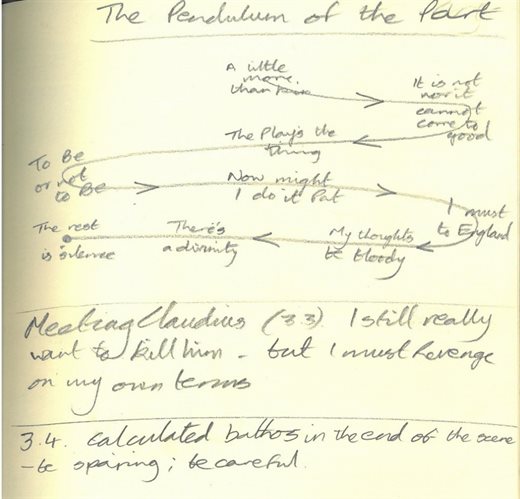 The Pendulum of the Part
A little
more
than kin
It is not
nor it
cannot
come to
good
The Play's the
thing
To Be
or not
to Be
Now might
I do it Pat
I must
to England
My thoughts
be bloody
There's
a divinity
The rest
is silence
Meeting Claudius (3 3) I still really
want to kill him - but I must Revenge
on my own terms
3.4. calculated bathos in the end of the scene
- be sparing; be careful.